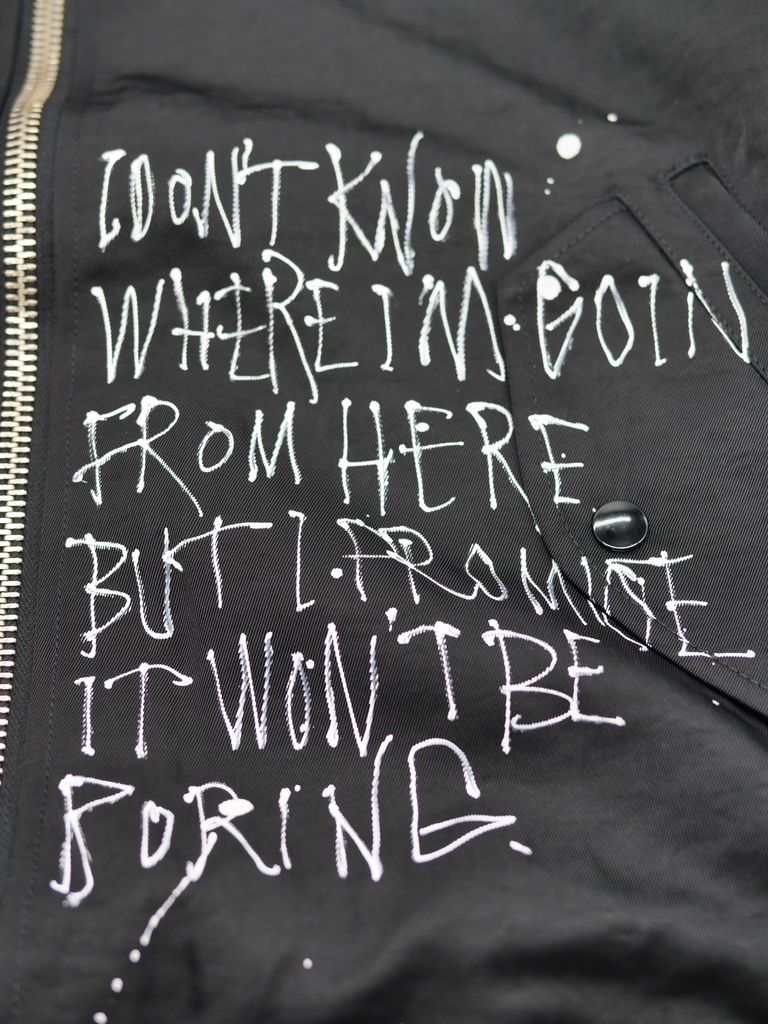 I DON'T KNOW
WHERE I'M GOIN
FROM HERE
BUT I PROMISE
IT WON'T BE
BORING.